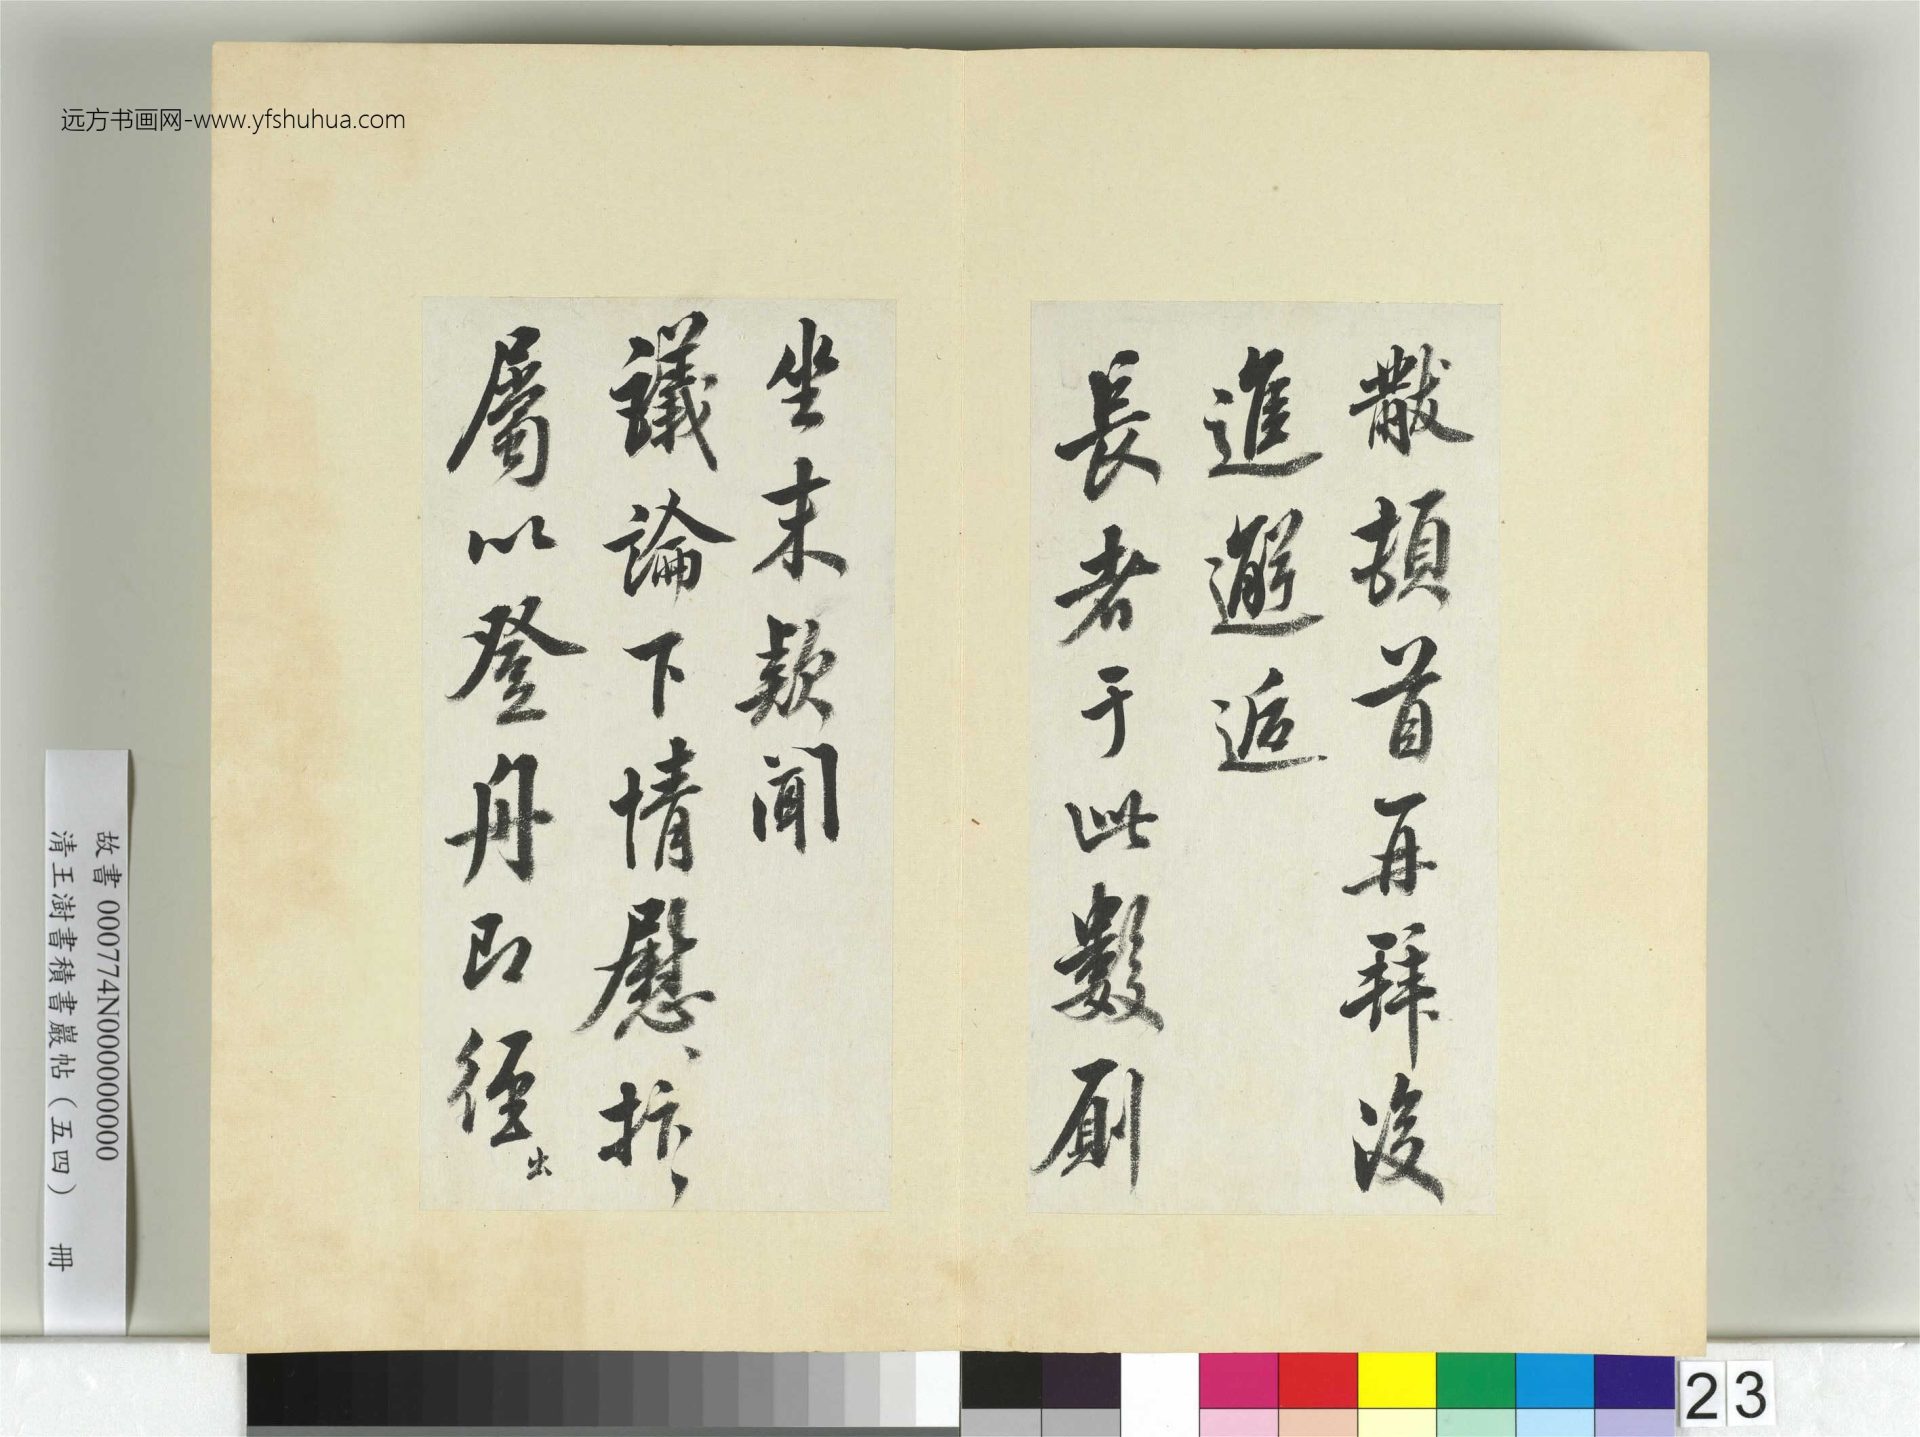 黻頓首再拜後
進邂逅
長者于此數廁
坐末款聞
議論下情慰、抃、
屬以登舟即徑出
远方书画网-www.yfshuhua.com
故書 000774N000000000
清王澍書積書巖帖（五四） 冊
23